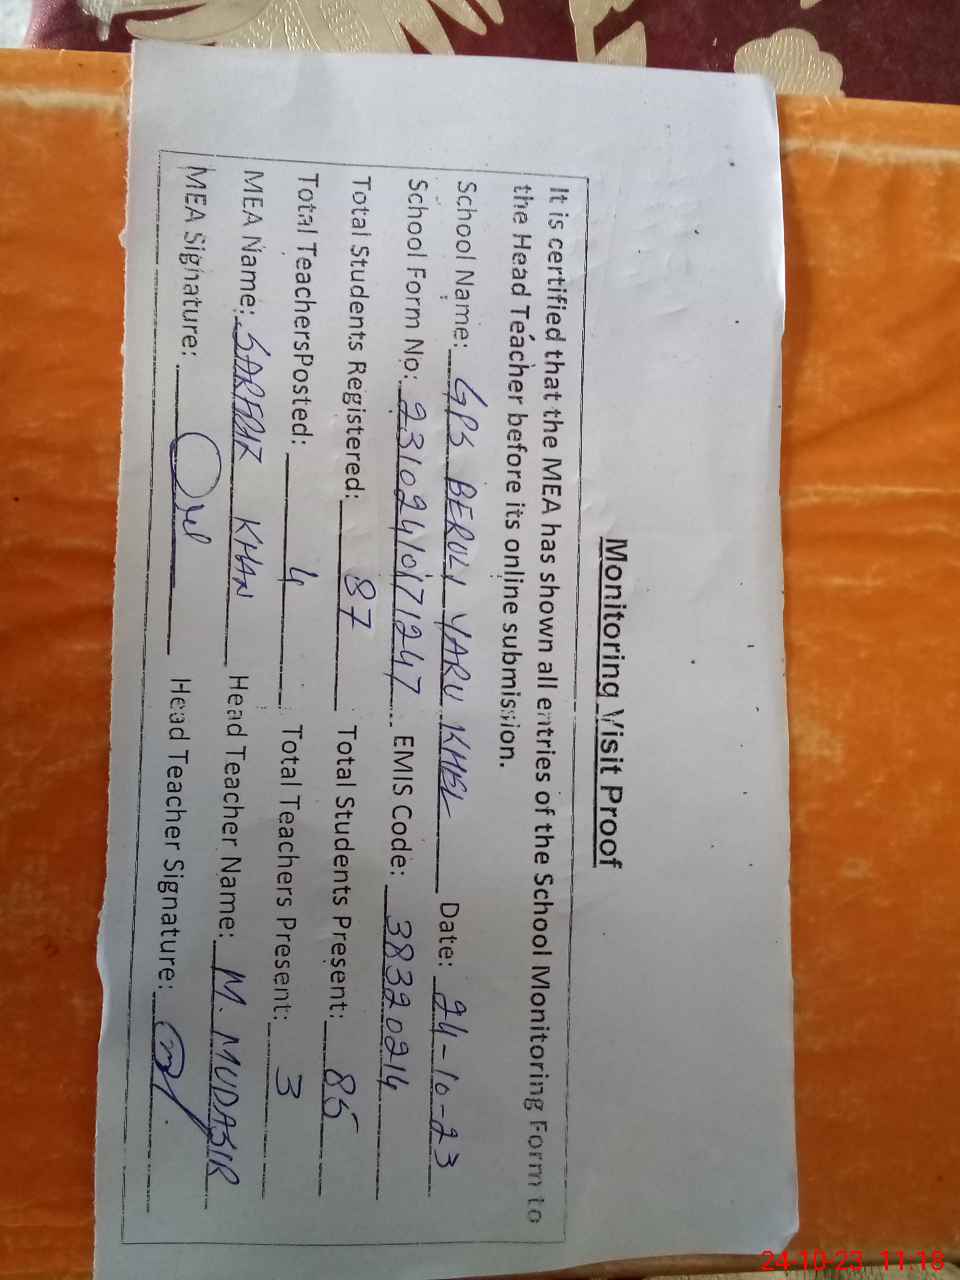 Monitoring Visit Proof
It is certified that the MEA has shown all entries of the School Monitoring Form to
the Head Teacher before its online submission.
School Name: GPS BERULY YARU KHEL Date: 24-10-23
School Form No: 23102410171247 EMIS Code: 38320214
Total Students Registered: 87 Total Students Present: 85
Total TeachersPosted: 4 Total Teachers Present: 3
MEA Name: SARFRAZ KHAN Head Teacher Name: M. MUDASIR
MEA Signature: Head Teacher Signature:
24-10-23 11:18